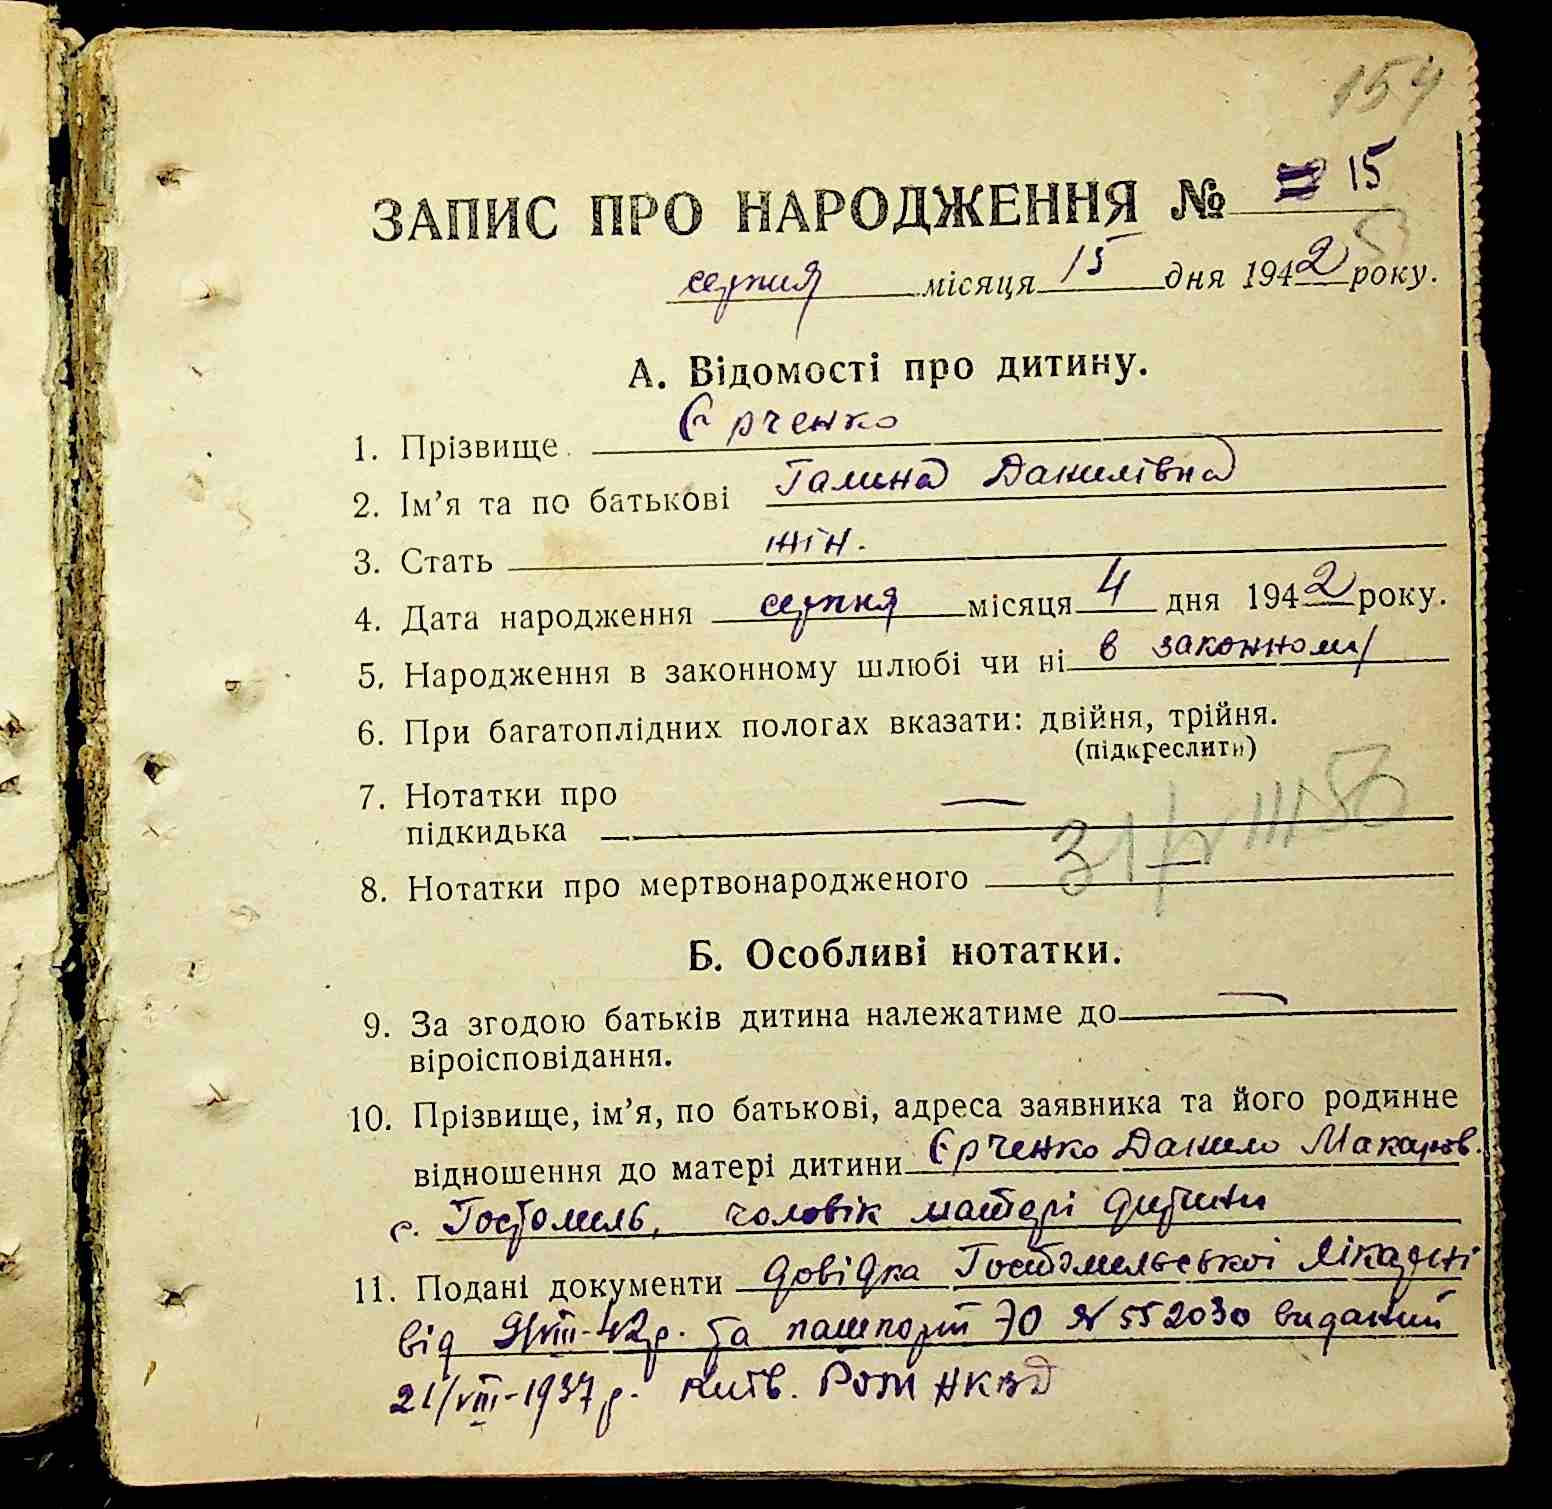 154
ЗАПИС ПРО НАРОДЖЕННЯ № 15
серпня місяця 15 дня 1942 року.
А. Відомості про дитину.
1. Прізвище Єрченко
2. Ім'я та по батькові Галина Данилівна
3. Стать жін.
4. Дата народження серпня місяця 4 дня 1942 року.
5. Народження в законному шлюбі чи ні в законному
6. При багатоплідних пологах вказати: двійня, трійня.
(підкреслити)
7. Нотатки про
підкидька —
8. Нотатки про мертвонародженого —
31/VIII 50
Б. Особливі нотатки.
9. За згодою батьків дитина належатиме до —
віроісповідання.
10. Прізвище, ім'я, по батькові, адреса заявника та його родинне
відношення до матері дитини Єрченко Данило Макаров.
с. Гостомель, чоловік матері дитини
11. Подані документи довідка Гостомельської лікарні
від 9/VIII-42р. та пашпорт № 552030 виданий
21/VIII-1937р. Київ. РОМ НКВД